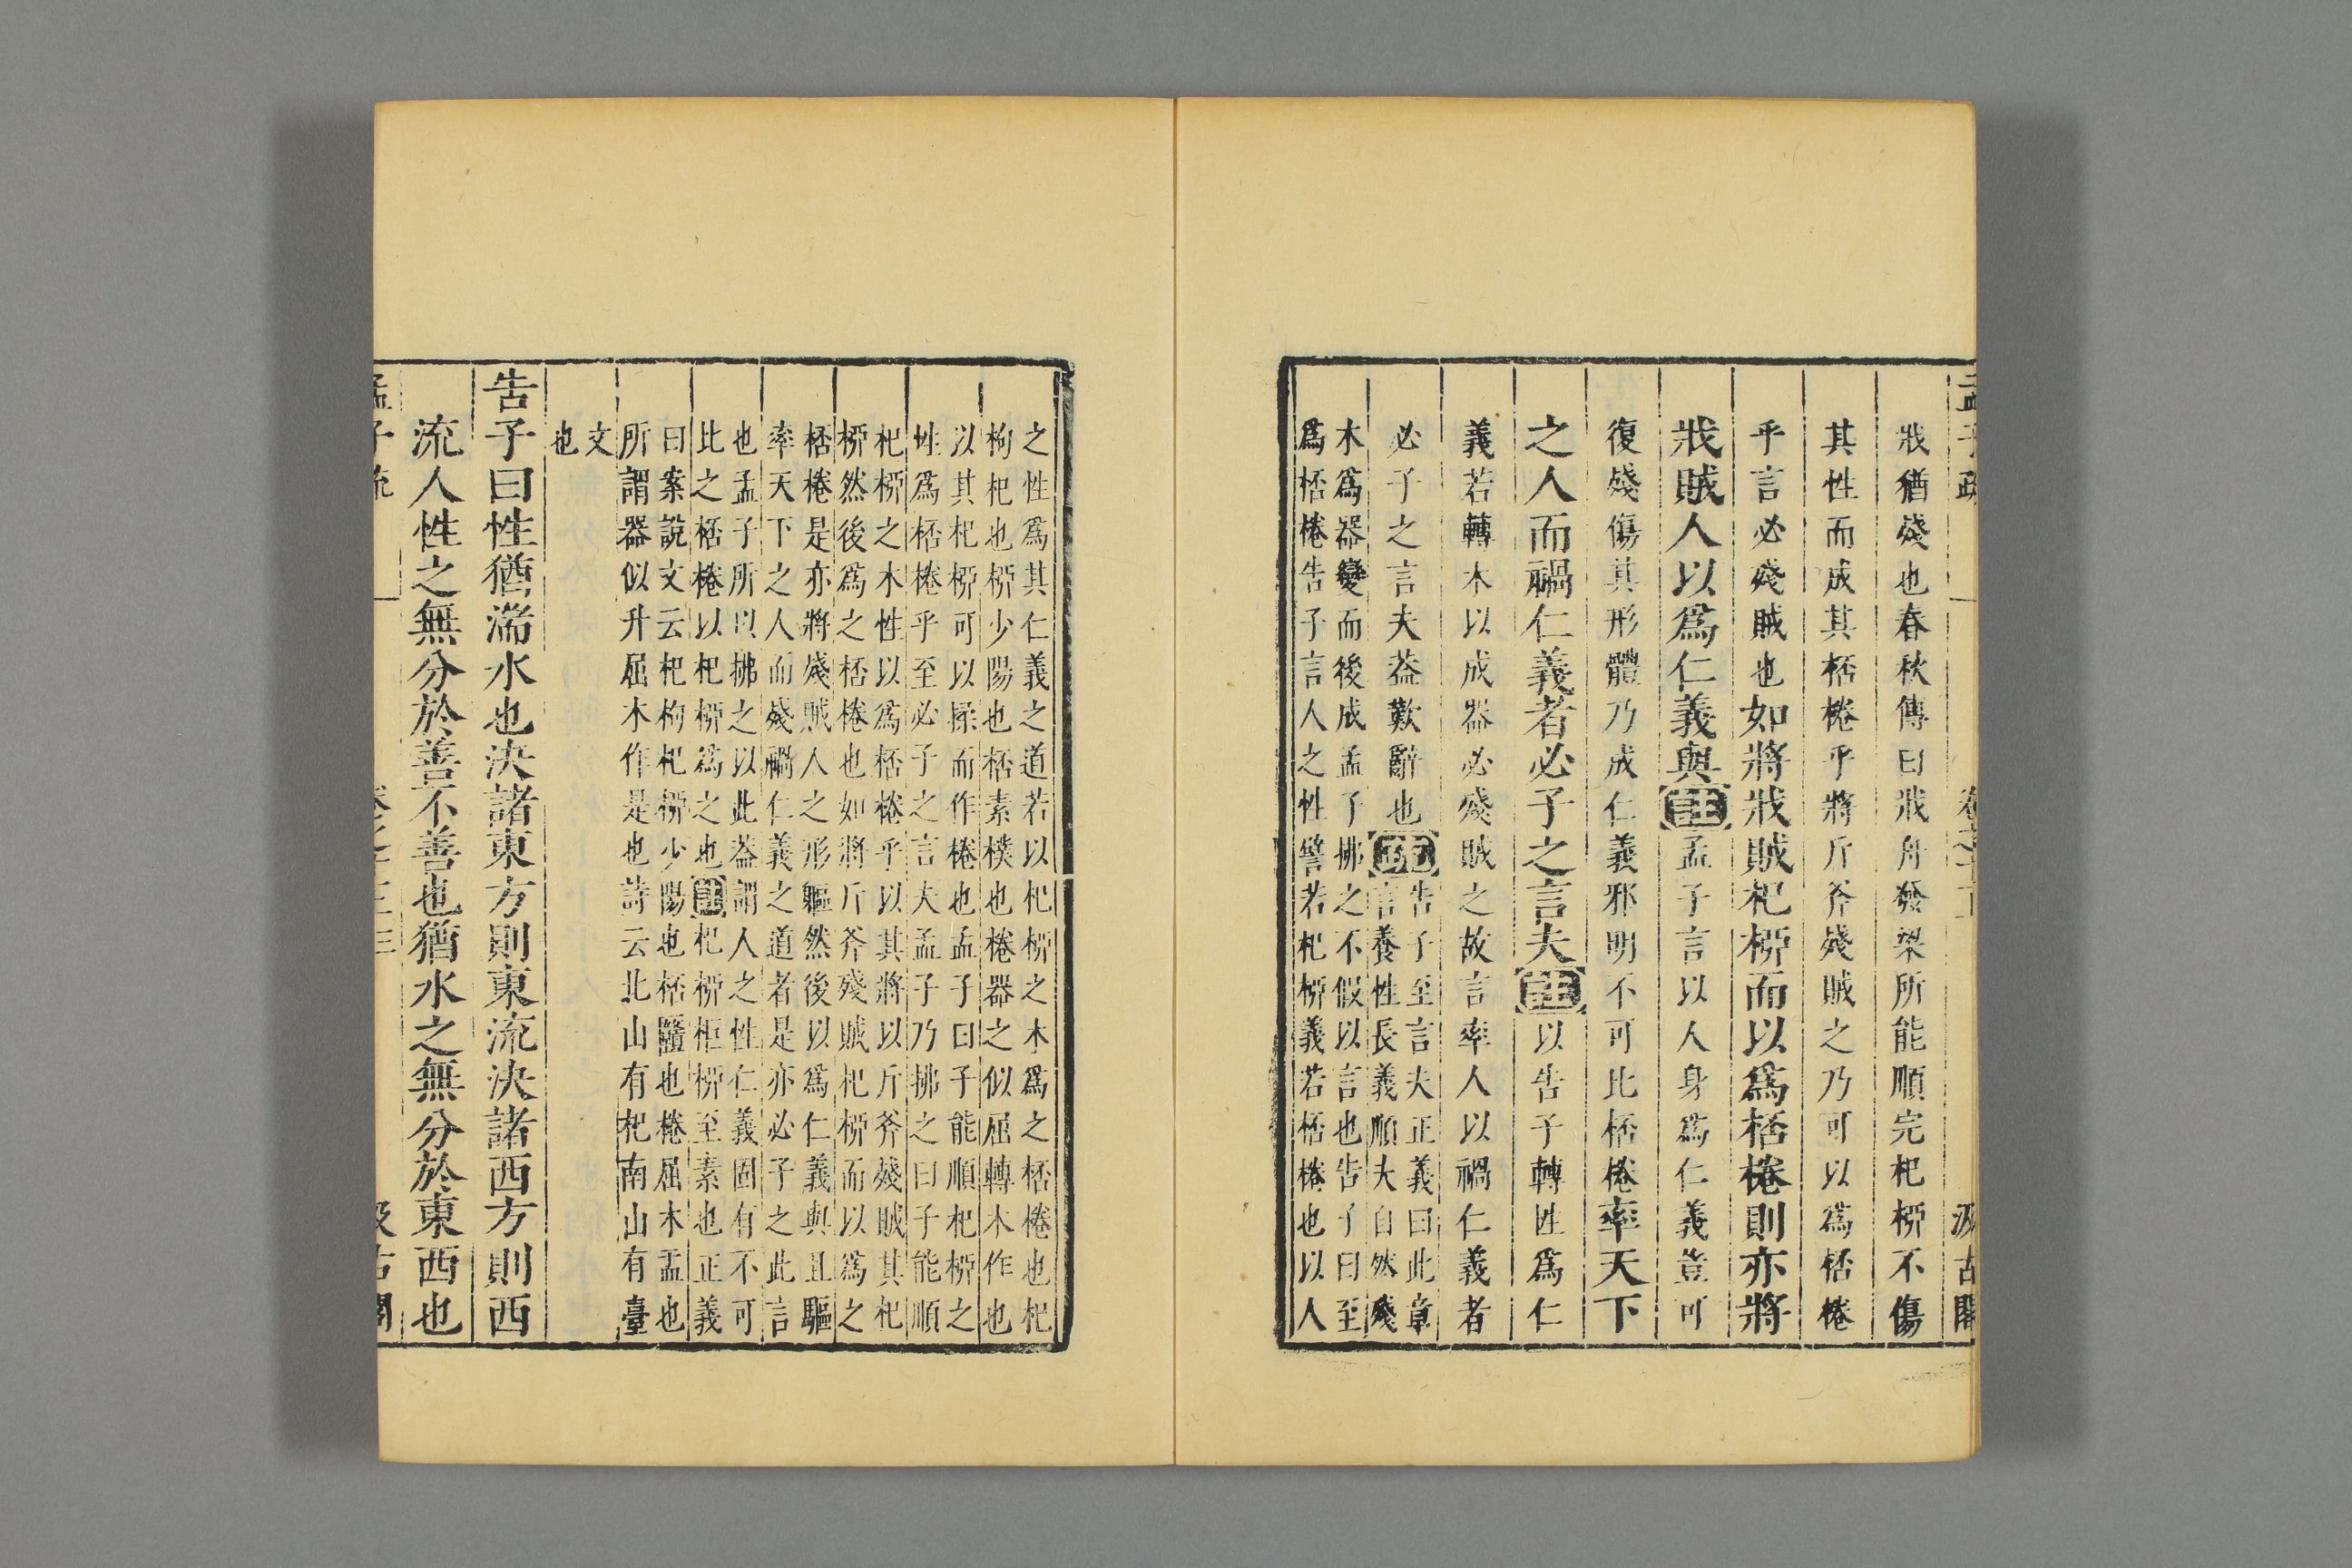 戕猶殘也春秋傳曰戕舟發梁所能順完杞柳不傷
其性而成其桮棬乎將斤斧殘賊之乃可以爲桮棬
乎言必殘賊也如將戕賊杞柳而以爲桮棬則亦將
戕賊人以爲仁義與註孟子言以人身爲仁義豈可
復殘傷其形體乃成仁義邪明不可比桮棬率天下
之人而禍仁義者必子之言夫註以告子轉性爲仁
義若轉木以成器必殘賊之故言率人以禍仁義者
必子之言夫葢歎辭也疏告子至言夫正義曰此章
言養性長義順夫自然殘
木爲器變而後成孟子拂之不假以言也告子曰至
爲桮棬告子言人之性譬若杞柳義若桮棬也以人
之性爲其仁義之道若以杞柳之木爲之桮棬也杞
枸杞也柳少陽也桮素樸也棬器之似屈轉木作也
以其杞柳可以揉而作棬也孟子曰子能順杞柳之
性爲桮棬乎至必子之言夫孟子乃拂之曰子能順
杞柳之木性以爲桮棬乎以其將以斤斧殘賊其杞
柳然後爲之桮棬也如將斤斧殘賊杞柳而以爲之
桮棬是亦將殘賊人之形軀然後以爲仁義與且驅
率天下之人而殘禍仁義之道者是亦必子之此言
也孟子所以拂之以此葢謂人之性仁義固有不可
比之桮棬以杞柳爲之也註杞柳柜柳至素也正義
曰案說文云杞枸杞柳少陽也桮䀋也棬屈木盂也
所謂器似升屈木作是也詩云北山有杞南山有臺
文
也
告子曰性猶湍水也決諸東方則東流決諸西方則西
流人性之無分於善不善也猶水之無分於東西也
孟子疏
汲古閣